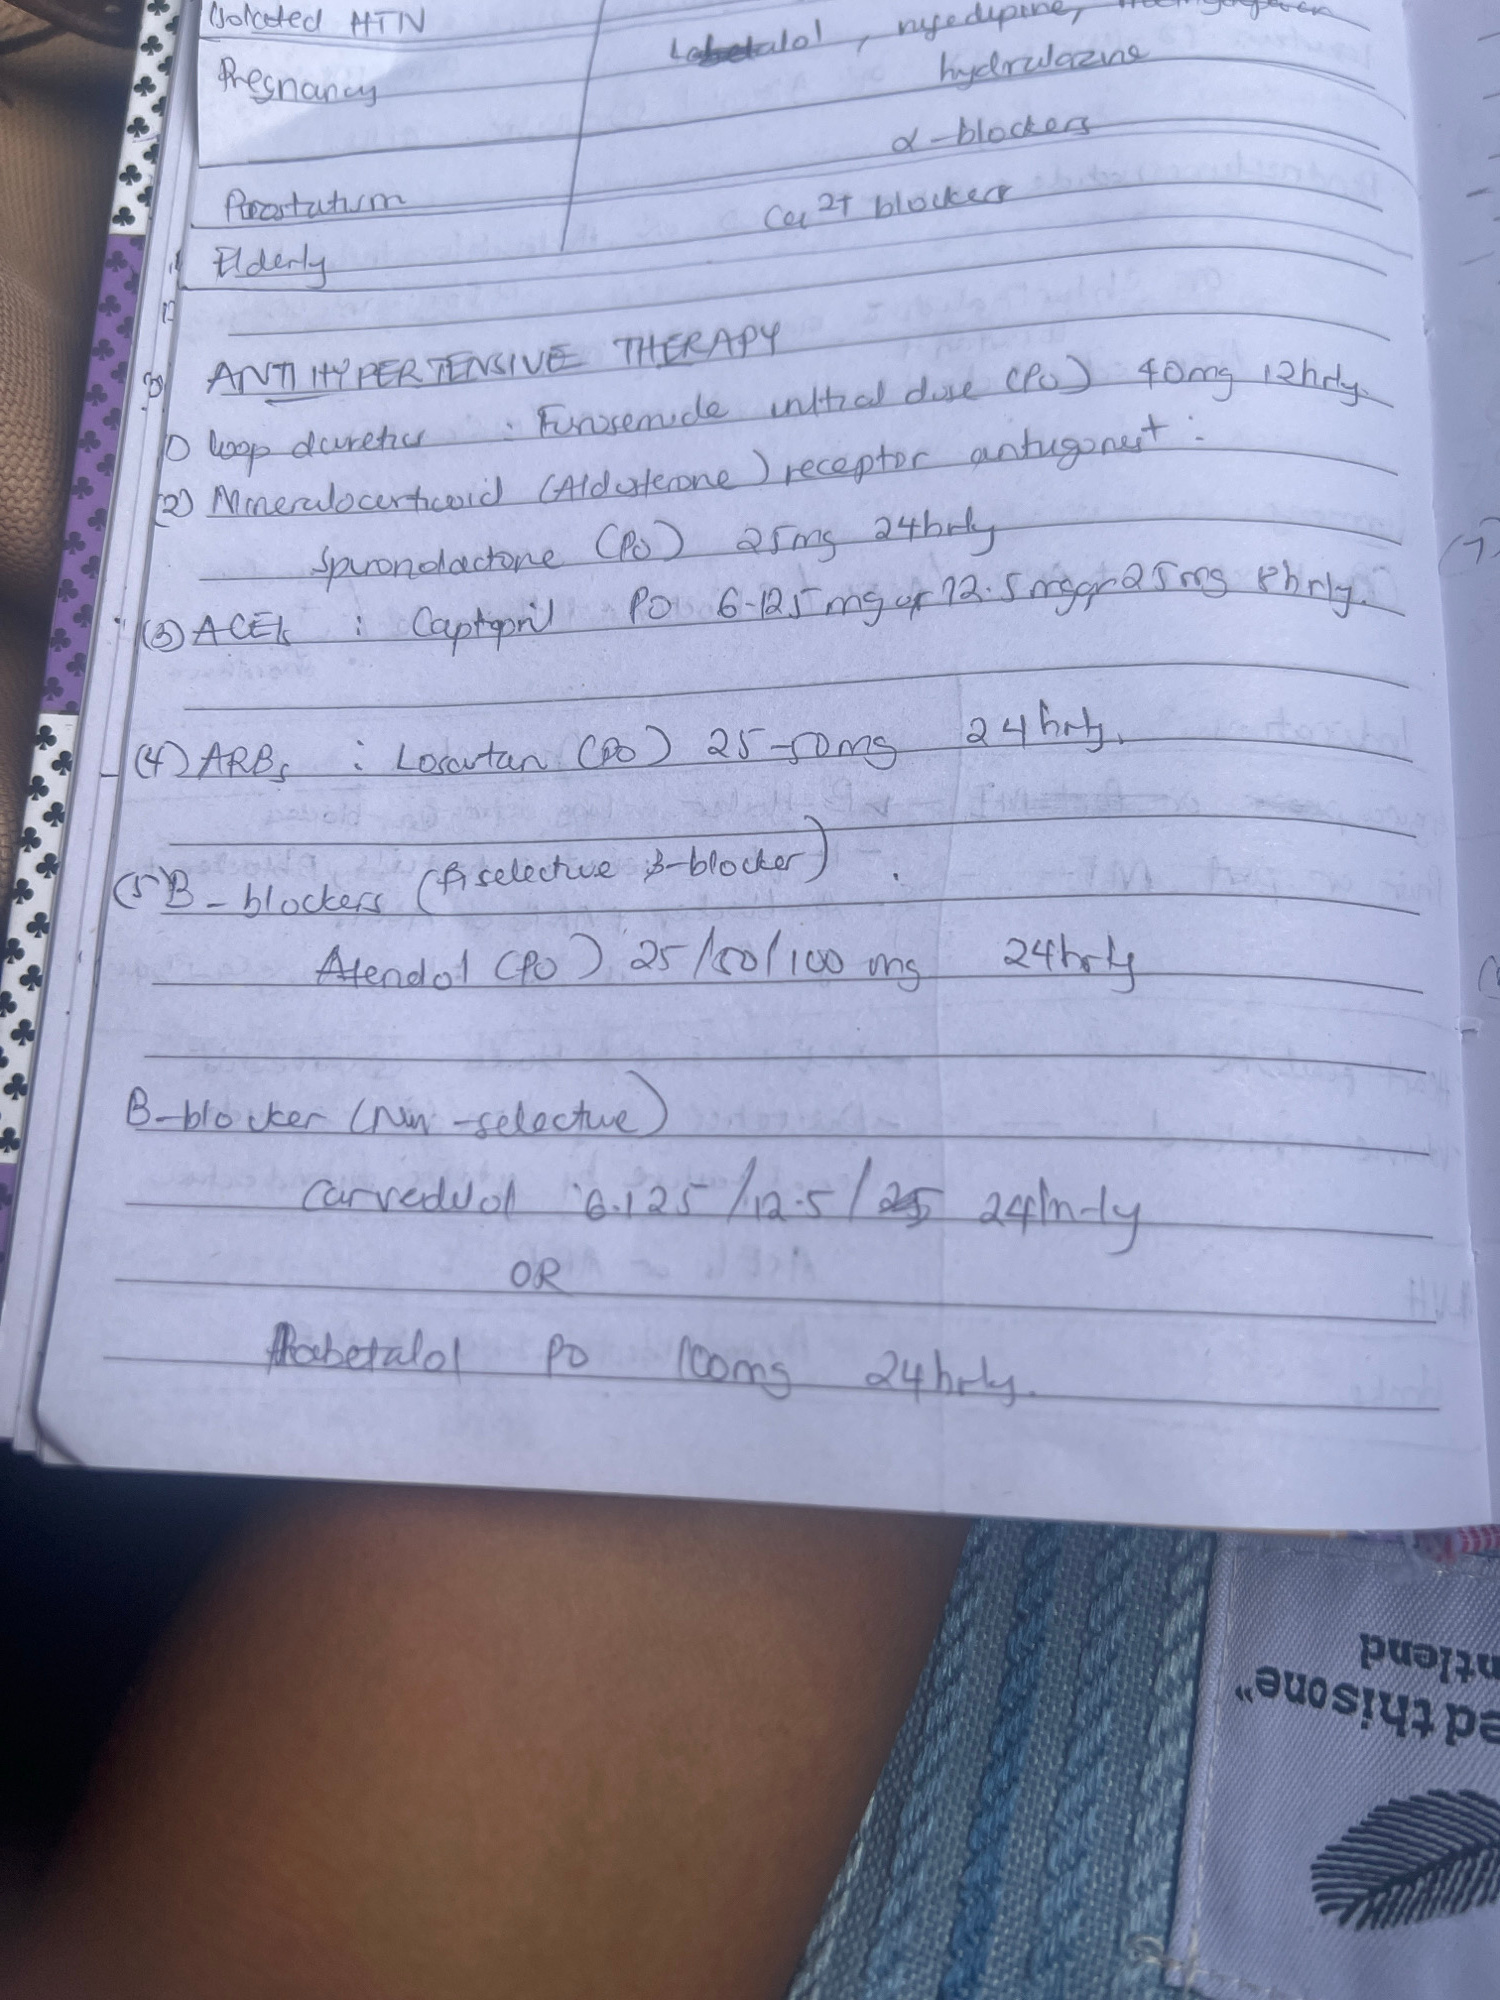 Isolated HTN
Pregnancy Labetalol, nifedipine,
hydralazine
α-blockers
Prostatum Ca2+ blockers
Elderly
ANTIHYPERTENSIVE THERAPY
1) loop diuretics : Furosemide initial dose (PO) 40mg 12hrly.
(2) Mineralocorticoid (Aldosterone) receptor antagonist :
Spironolactone (PO) 25mg 24hrly
(3) ACEIs : Captopril PO 6.125mg or 12.5mg or 25mg 8hrly.
(4) ARBs : Losartan (PO) 25-50mg 24hrly.
(5) B-blockers (β1selective β-blocker) :
Atenolol (PO) 25/50/100 mg 24hrly
B-blocker (Non-selective)
Carvedilol 6.125/12.5/25 24hrly
OR
Labetalol PO 100mg 24hrly.
ed thisone"
ntlend